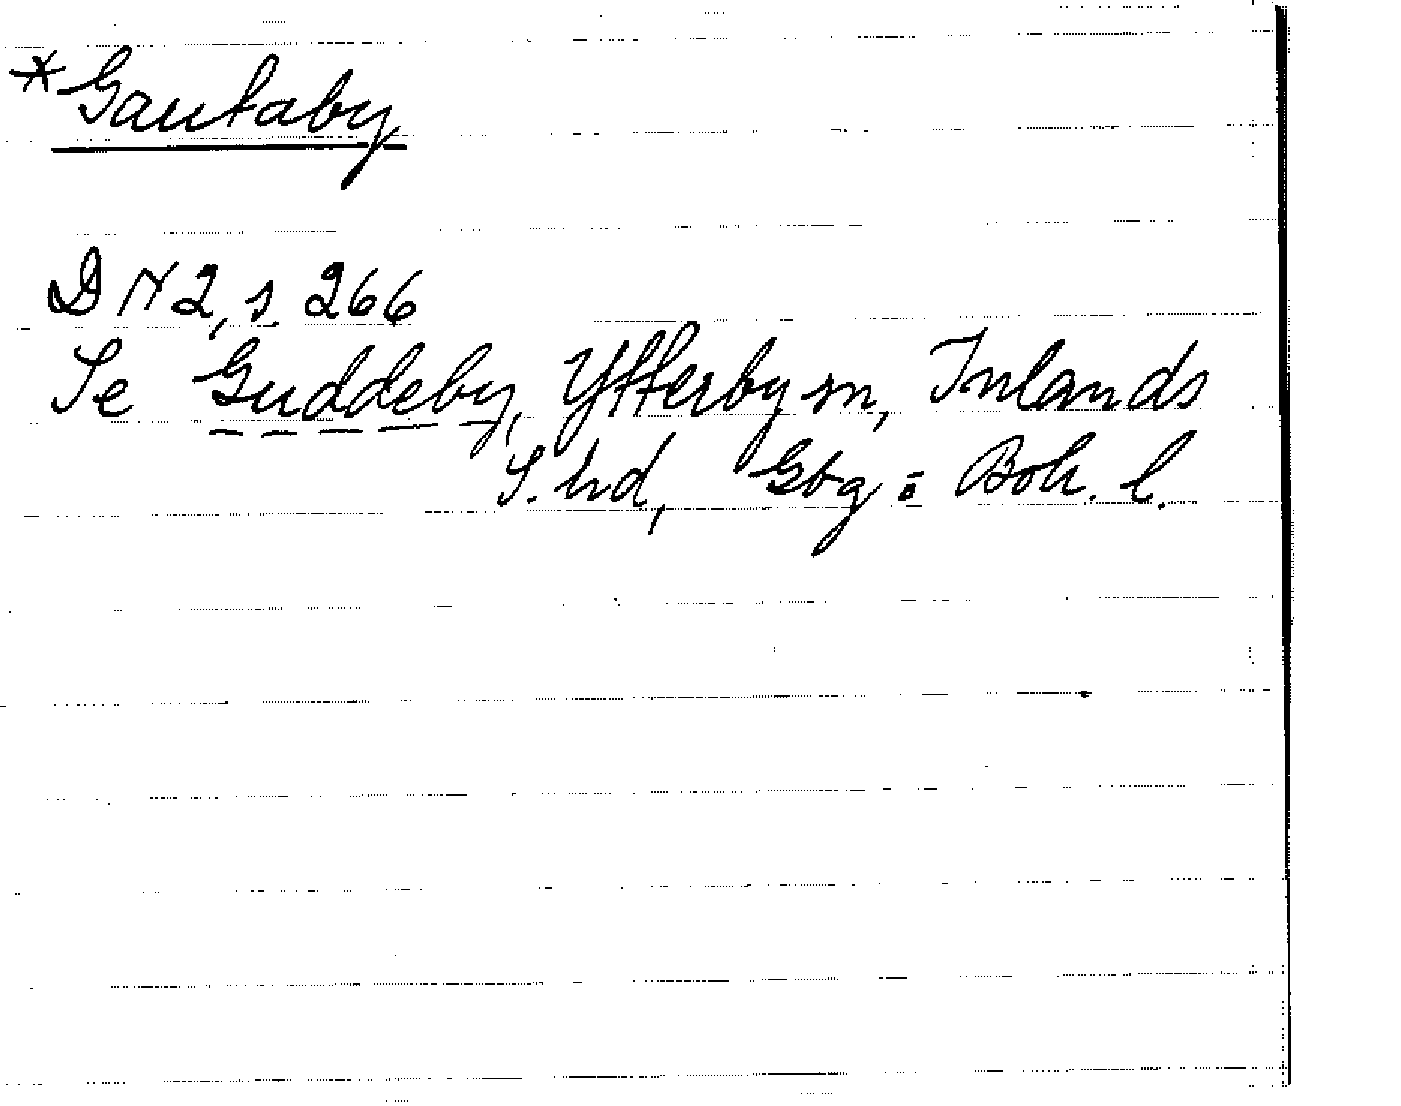 *Gautaby
DN 2, s. 266
Se Guddeby, Ytterby sn, Inlands
S. hd, Gbg o Boh. l.